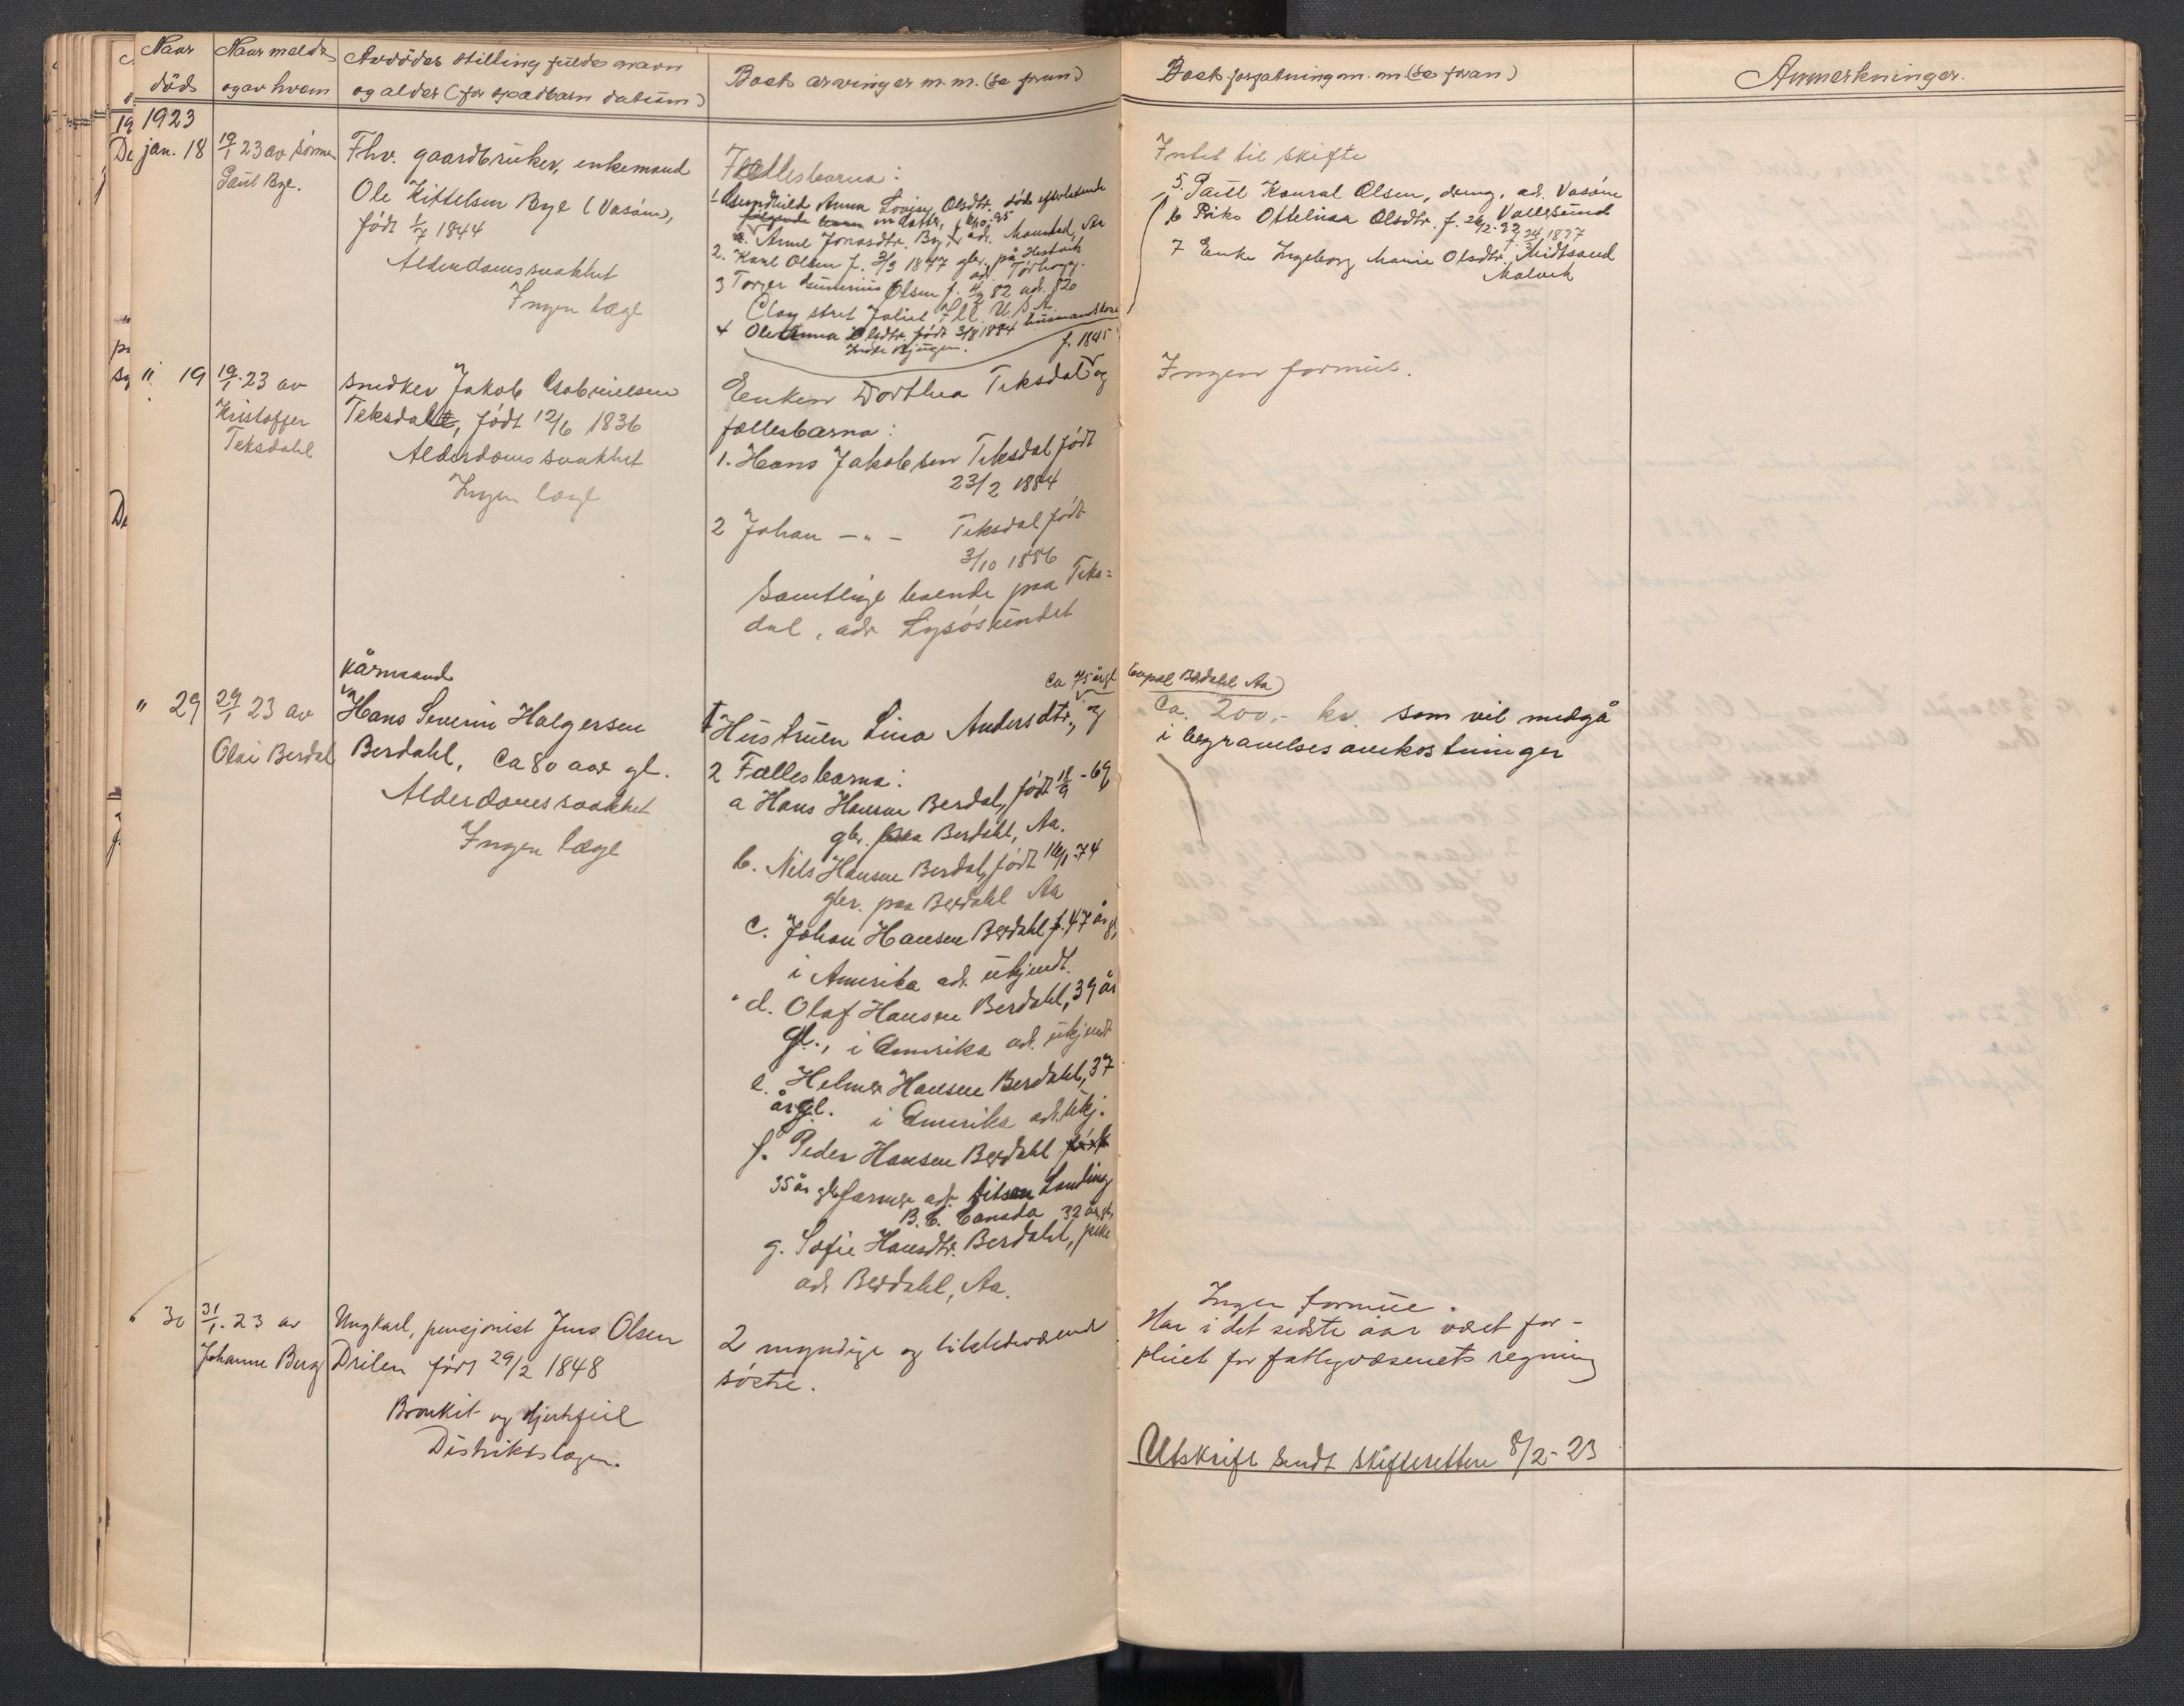 Naar død
Naar meldt og av hvem
Avdødes stilling fulde navn og alder (for spædbarn datum)
Boets arvinger m.m. (se foran)
Boets forfatning m.m (se foran)
Anmerkninger.
1923
jan. 18
19/1 23 av sønnen
Paul Bye.
Fhv. gaardbruker, enkemand
Ole Kittelsen Bye (Vasøen),
født 1/7 1844
Alderdomssvakhet
Ingen læge
Fællesbarna:
1 Anna Lovise Olsdtr. død efterlatende
følgende barn
a. Anne Jonasdtr. By, adr. Aa
2. Karl Olsen f. 3/3 1877 gbr. på
adr. Tørhogg.
3 Torger Olsen f. 82 adr. 820
Clay stret Joliet Ill. U.S.A
4 Ole Anna Olsdtr. født 3/8 1884 husmandskone
Indre Bjugn.
Intet til skifte
5. Paul Konrad Olsen, adr. Vasøen
6 Pike Ottelina Olsdtr. f. Vallersund
7 Enke Ingeborg Marie Olsdtr. Midtsand
Malvik
" 19
19/1 23 av
Kristoffer
Teksdahl
snedker Jakob Gabrielsen
Teksdal, født 12/6 1836
Alderdomssvakhet
Ingen læge
f. 1845
Enken Dorthea Teksdal og
fællesbarna:
1. Hans Jakobsen Teksdal født
23/2 1884
2 Johan — " — Teksdal født
3/10 1886
Samtlige boende paa Teks=
dal, adr Lysøsundet
Ingen formue.
" 29
29/1 23 av
Olai Berdal
Kårmand
Hans Severin Holgersen
Berdahl, Ca 80 aar gl.
Alderdomssvakhet
Ingen læge
Ca 75 årgl
1 Hustruen Lina Andersdtr., og
2 Fællesbarna:
a Hans Hansen Berdal, født 18/9 - 69
gbr. paa Berdahl, Aa.
b. Nils Hansen Berdal, født 16/1-74
gbr. paa Berdahl Aa
c. Johan Hansen Berdahl f. 47 år gl,
i Amerika adr. ukjendt.
d. Olaf Hansen Berdahl, 39 år
gl., i Amerika adr. ukjendt
e. Helmer Hansen Berdahl, 37
år gl. i Amerika adr. ukj.
f. Peder Hansen Berdahl født
35 år gl farmer adr. Landing
B.C. Canada 32 år gl,
g. Sofie Hansdtr. Berdahl, pike
adr Berdahl, Aa.
Berdahl Aa
Ca. 200,- kr. som vil medgå
i begravelsesomkostninger
" 30
31/1 - 23 av
Johanne Berg
Ungkarl, pensjonist Jens Olsen
Drilen født 29/2 1848
Bronkit og hjertefeil
Distriktslægen.
2 myndige og tilstedeværende
søstre.
Ingen formue.
Har i det sidste aar været for-
pleiet for fattigvæsenets regning
Utskrift sendt skifteretten 8/2-23